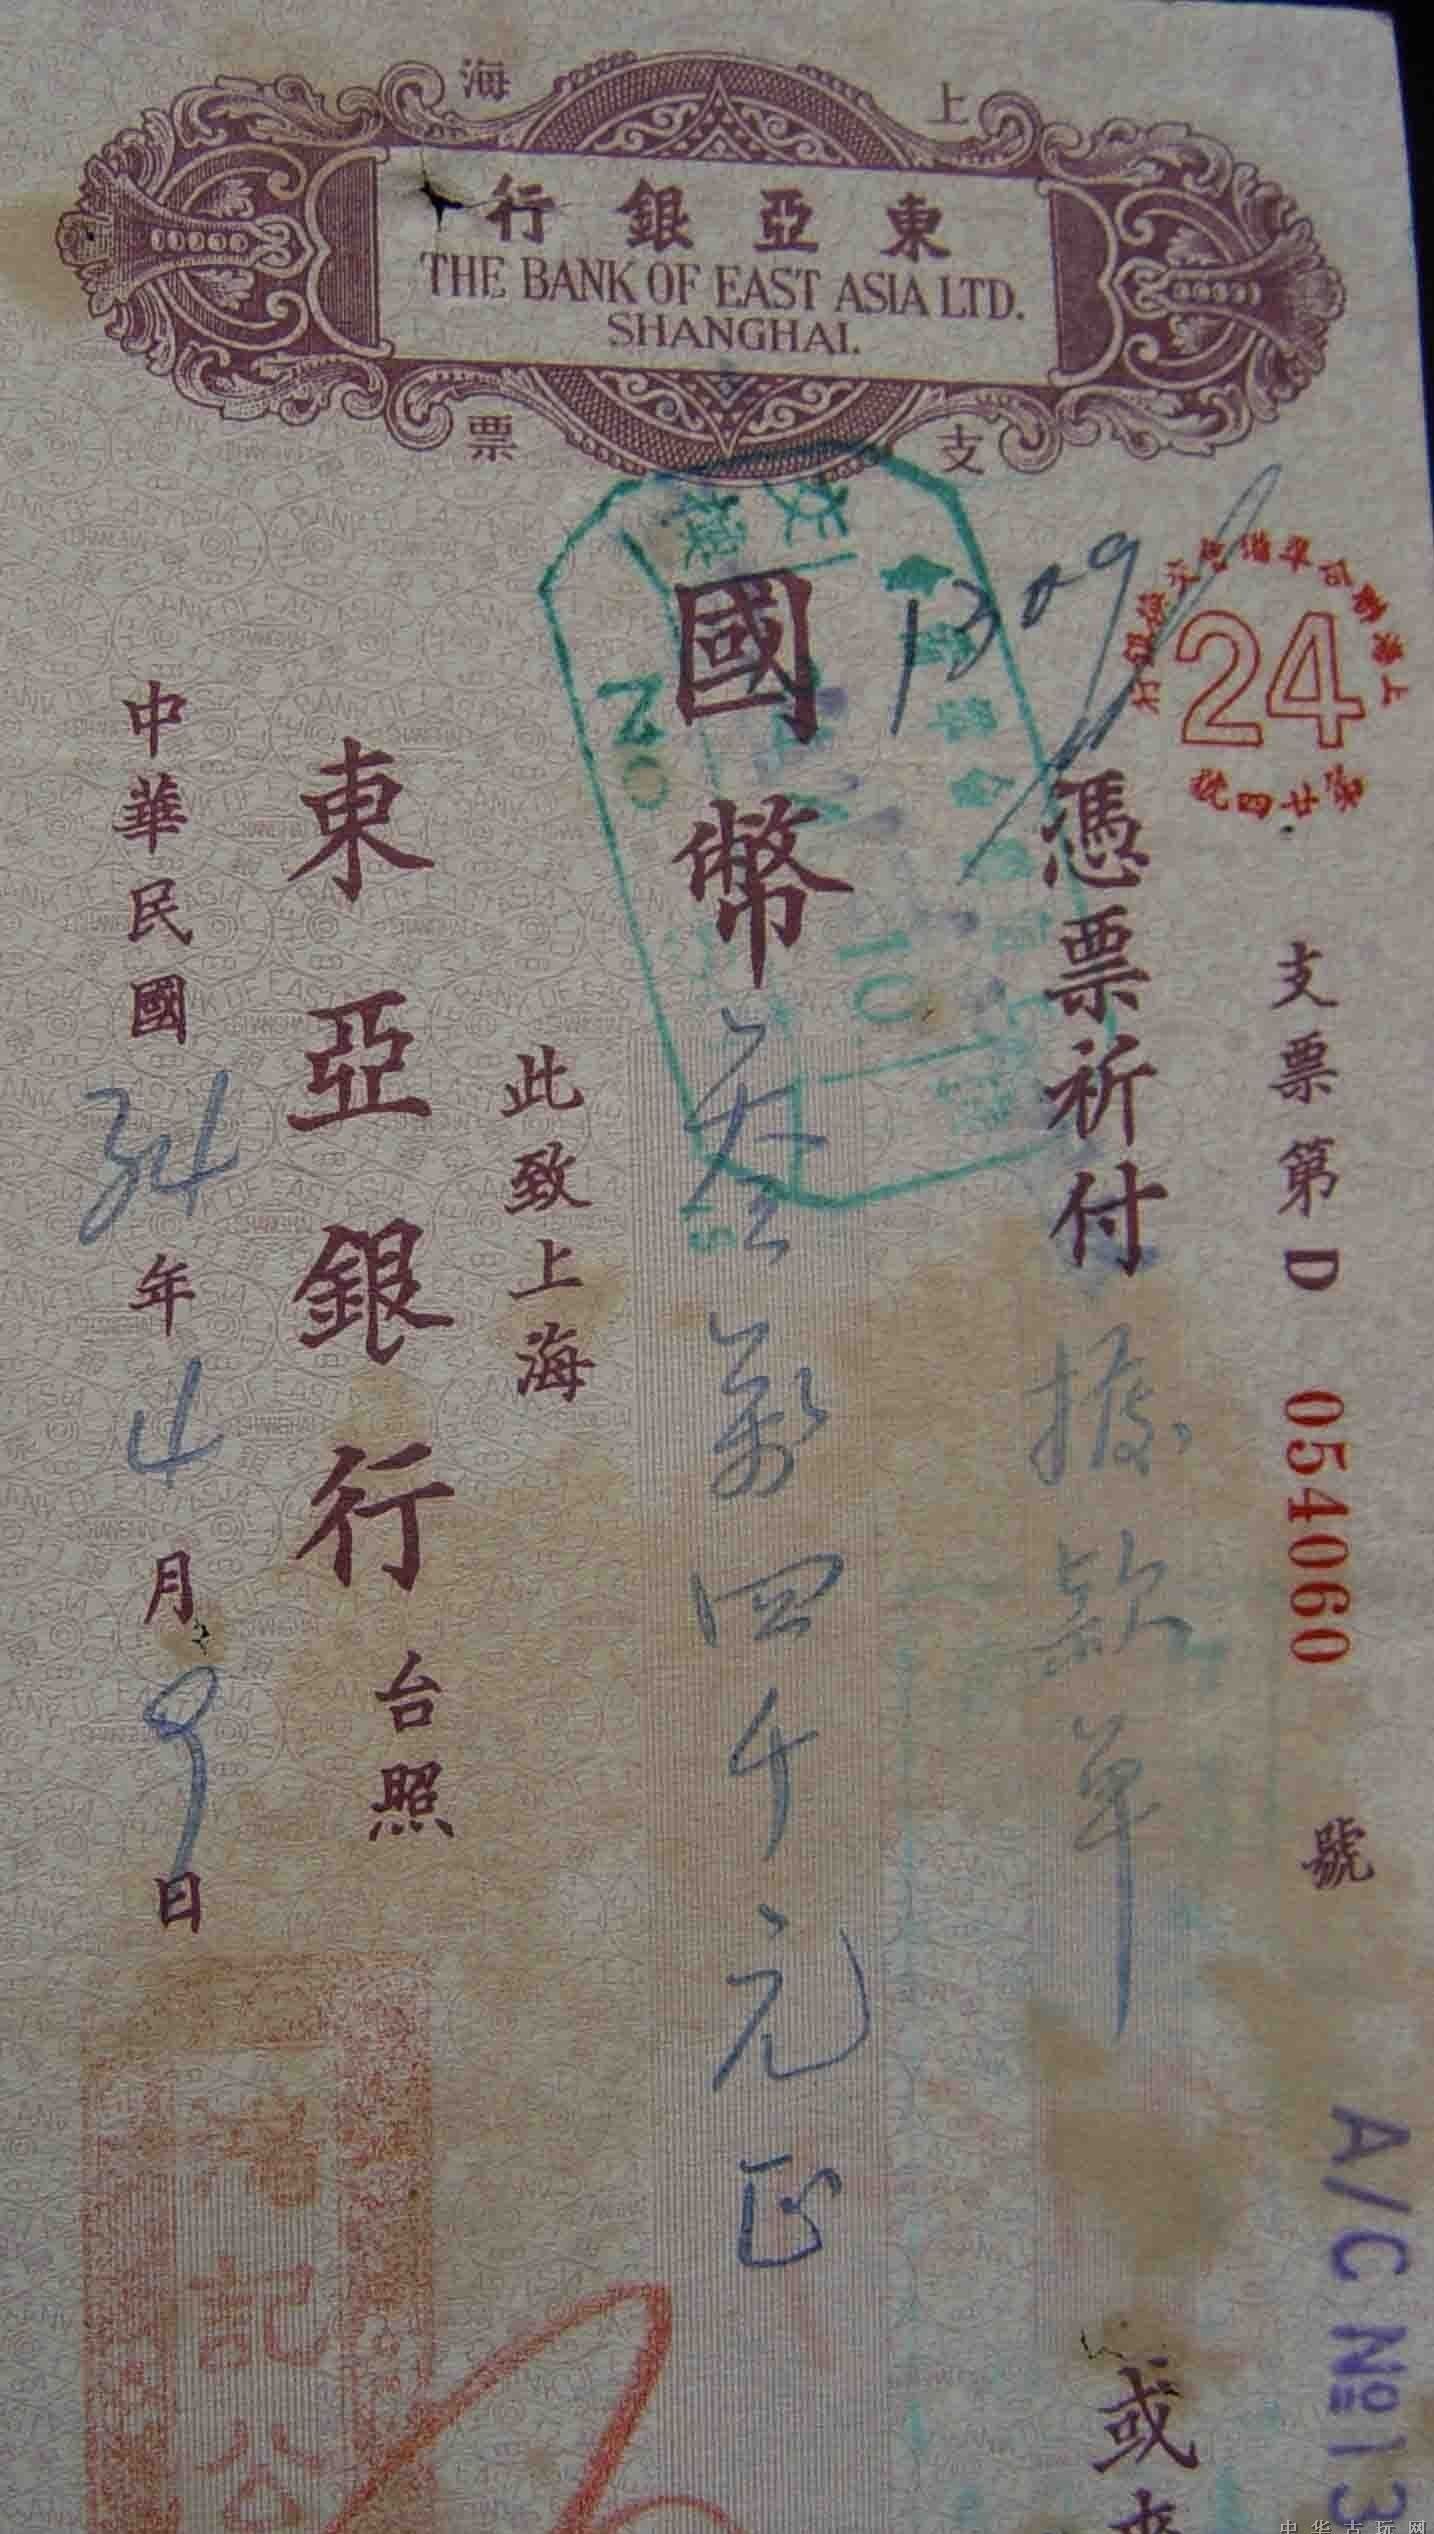 上海
東亞銀行
THE BANK OF EAST ASIA LTD.
SHANGHAI.
支票
24
第廿四號
1309
支票第D 054060 號
A/C No 13
憑票祈付 據款單 或來
國幣 叁萬四千元正
NO
10
此致上海
東亞銀行台照
中華民國34年4月9日
記公
中华古玩网